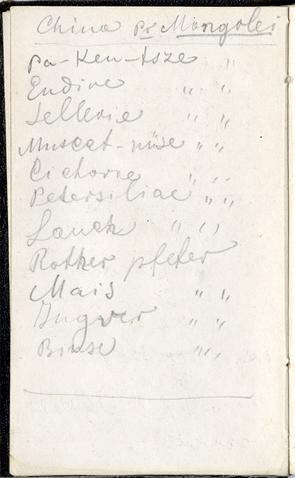 China pr Mongolei
Pa-Ken-tsze "
Endive " "
Sellerie " "
Muscat-nüse " "
Cichorie " "
Petersiliae " "
Lauch " "
Rother pfefer
Mais " "
Ingver " "
Binse " "